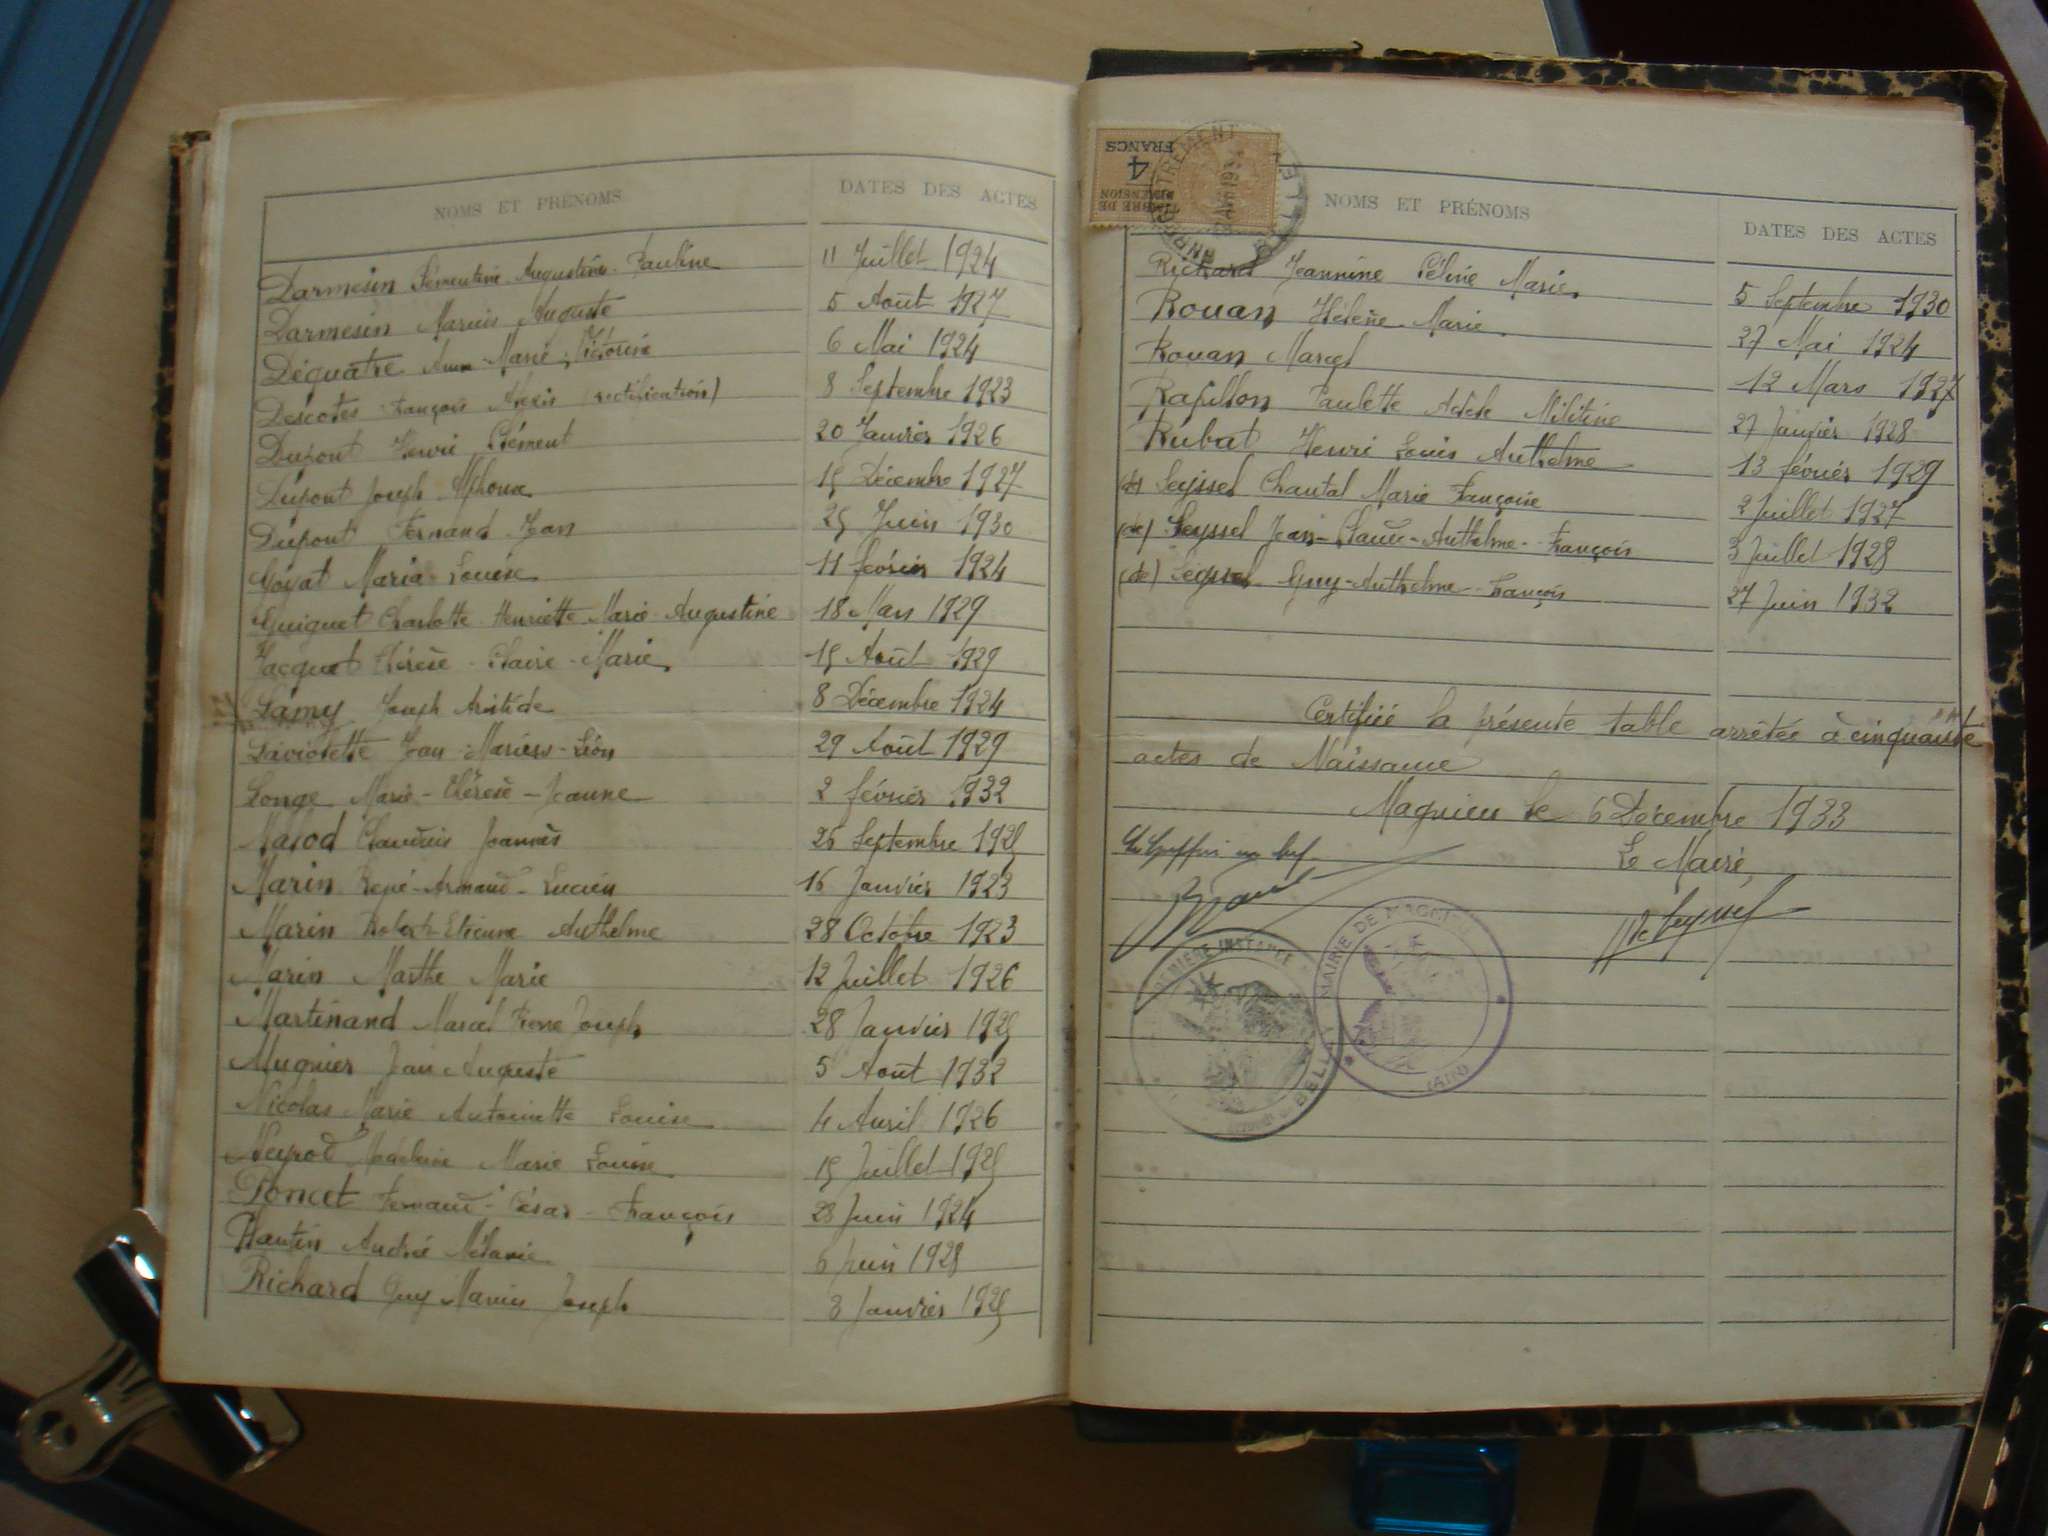 NOMS ET PRÉNOMS DATES DES ACTES
Darmesin Clémentine Augustine Pauline 11 Juillet 1924
Darmesin Marius Auguste 5 Août 1927
Déquatre Anne-Marie Victorine 6 Mai 1924
Descotes François Alexis (rectification) 8 Septembre 1923
Dupont Henri Clément 20 Janvier 1926
Dupont Joseph Alphonse 15 Décembre 1927
Dupont Fernand Jean 25 Juin 1930
Goyat Maria Louise 11 février 1924
Guiguet Charlotte Henriette Marie Augustine 18 Mars 1929
Jacquet Thérèse-Claire-Marie 15 Août 1929
Lamy Joseph Aristide 8 Décembre 1924
Laviolette Jean-Marius-Léon 29 Août 1929
Longe Marie-Thérèse-Jeanne 2 février 1932
Masod Claudius Joannès 26 Septembre 1925
Marin René-Armand-Lucien 16 Janvier 1923
Marin Robert-Etienne Anthelme 28 Octobre 1923
Marin Marthe Marie 12 Juillet 1926
Martinand Marcel Pierre Joseph 28 Janvier 1925
Mugnier Jean Auguste 5 Août 1932
Nicolas Marie Antoinette Louise 4 Avril 1926
Neyrod Madeleine Marie Louise 15 Juillet 1925
Poncet Fernand-César-François 28 Juin 1924
Plantin André Mélanie 6 Juin 1928
Richard Guy Marius Joseph 3 Janvier 1925
4 FRANCS
TIMBRE DE DIMENSION
NOMS ET PRÉNOMS DATES DES ACTES
Richard Jeannine Céline Marie 5 Septembre 1930
Rouan Hélène Marie 27 Mai 1924
Rouan Marcel 12 Mars 1927
Rapillon Paulette Adèle Militine 27 Janvier 1928
Rubat Henri Louis Anthelme 13 février 1929
(de) Seyssel Chantal Marie Françoise 2 Juillet 1927
(de) Seyssel Jean-Claude-Anthelme-François 3 Juillet 1928
(de) Seyssel Guy-Anthelme-François 27 Juin 1932
Certifiée la présente table arrêtée à cinquante
actes de Naissance
Magnieu le 6 Décembre 1933
Le Maire,
MAIRIE DE MAGNIEU
(AIN)
PREMIÈRE INSTANCE
BELLEY